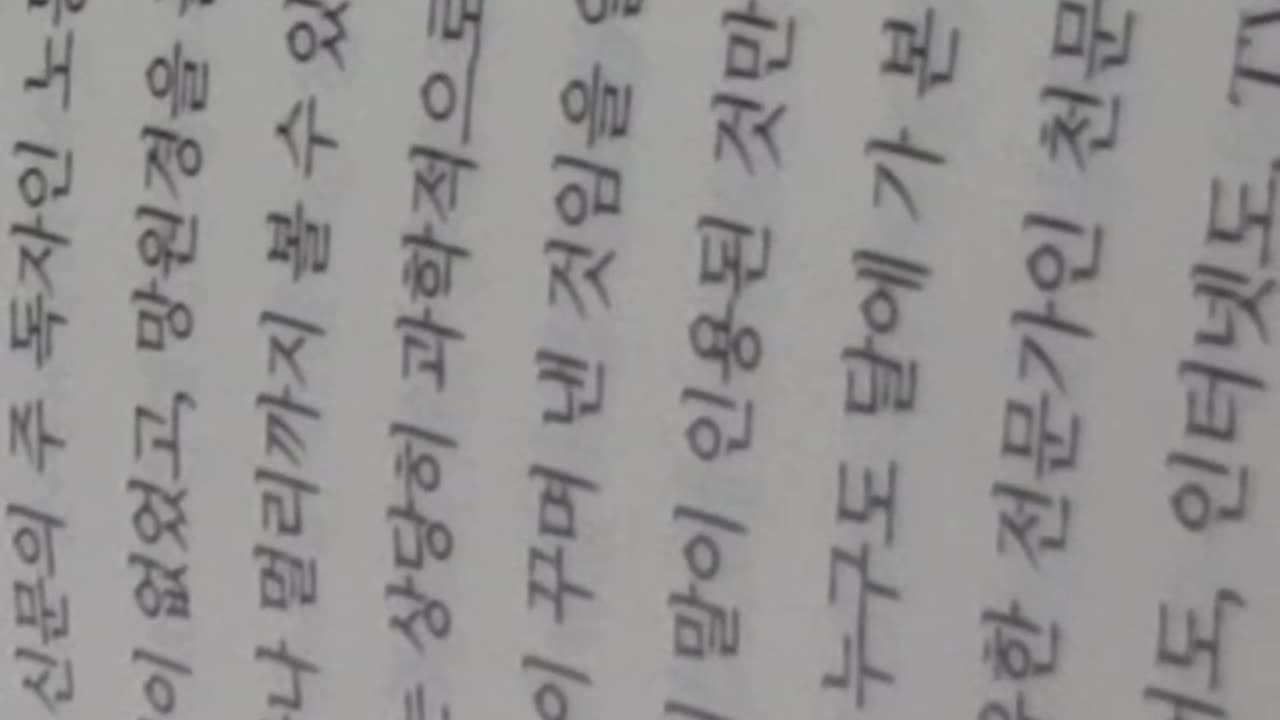 신문의 주 독자인 노
없었고, 망원경을
멀리까지 볼 수 있
상당히 과학적으로
이 꾸며 낸 것임을
말이 인용된 것만
누구도 달에 가 본
전문가인 천문
도, 인터넷도, TV